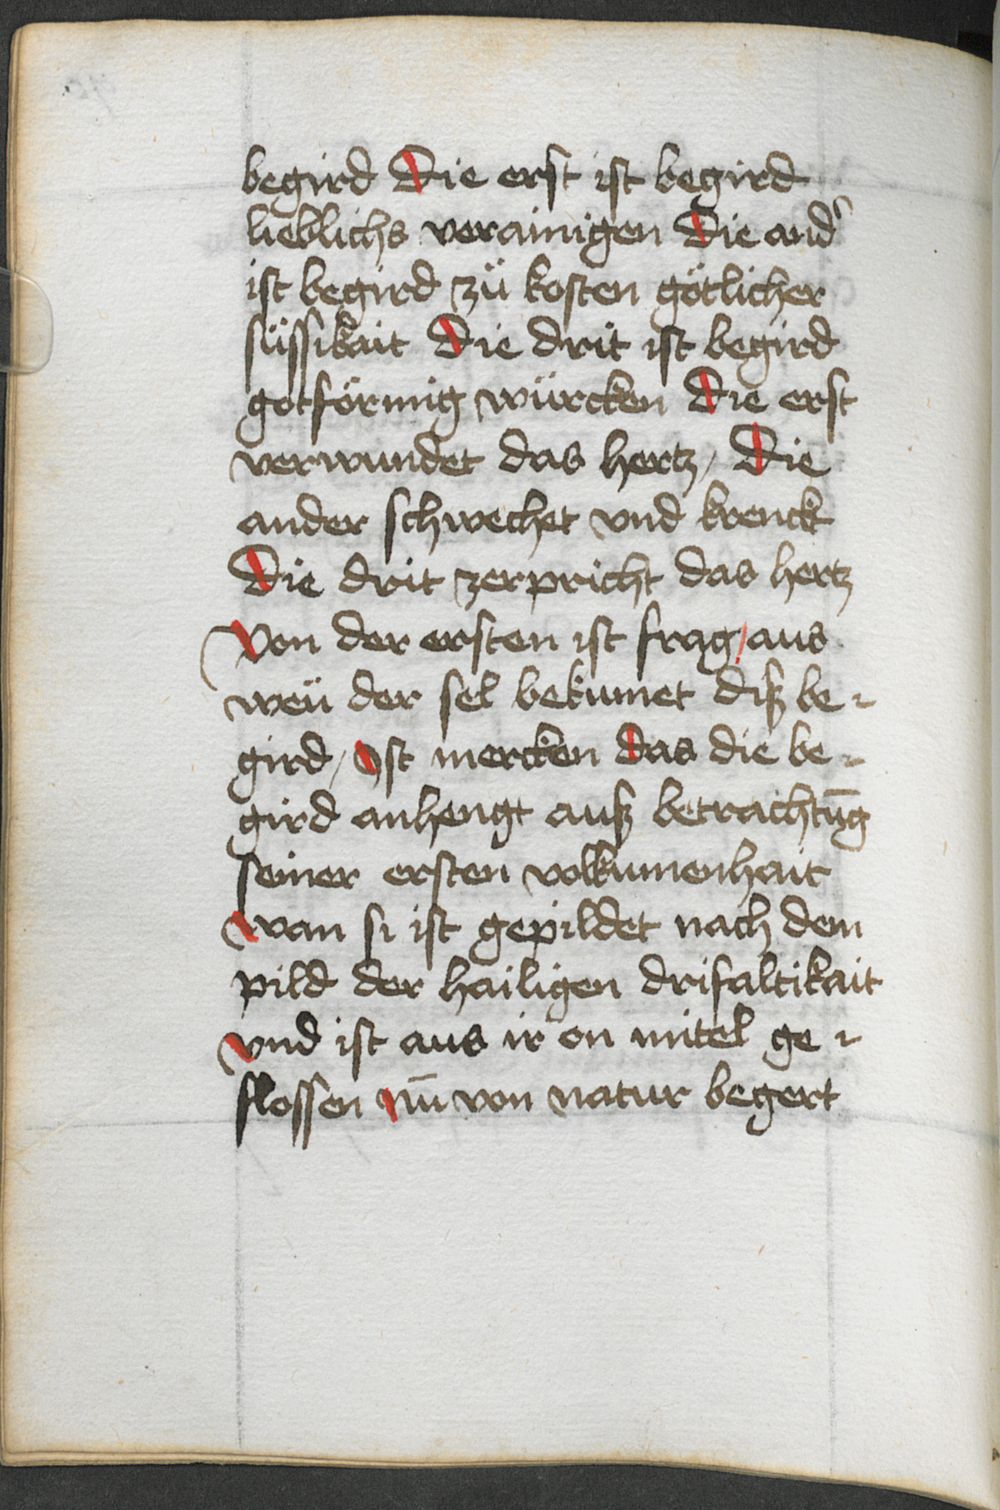 begird Die erst ist begird
lieblichs verainigen Die and᾽
ist begird zü kosten götlicher
süssikait Die drit ist begird
gotförmig würcken Die erst
verwundet das hertz / Die
ander schwechet vnd krenck
Die drit zerpricht das hertz
Von der ersten ist frag / aus
weü der sel bekumet disz be-
gird / Ist mercken das die be-
gird anhengt ausz betrachtūg
seiner ersten volkumenhait
wan si ist gepildet nach dem
pild der hailigen drifaltikait
vnd ist aus ir on mitel ge-
flossen nū von natur begert